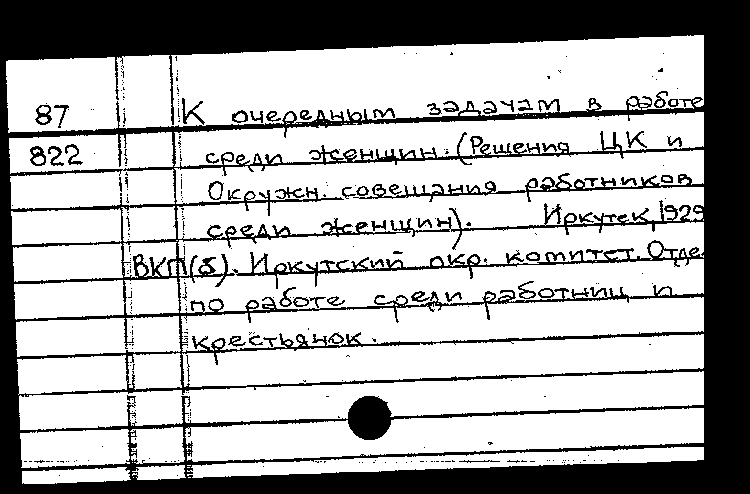 87 К очередным задачам в работе
822 среди женщин. (Решения ЦК и
Окружн. совещания работников
среди женщин). Иркутск, 1929
ВКП(б). Иркутский окр. комитет. Отде
по работе среди работниц и
крестьянок.